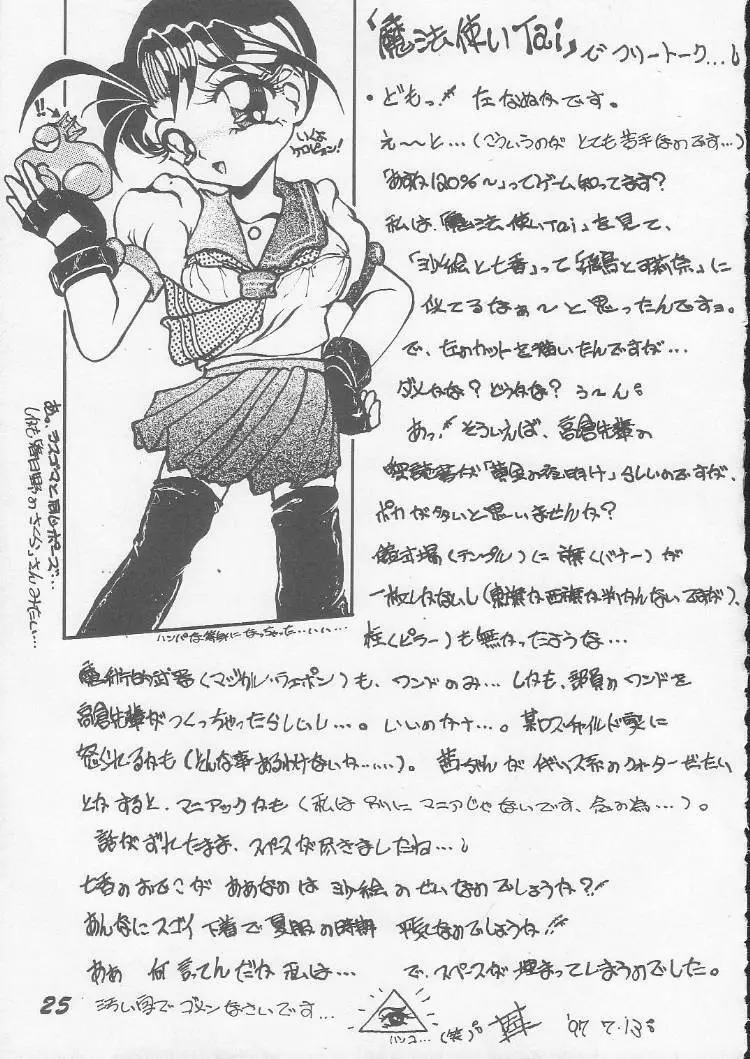 「魔法使いTai」でフリートーク…
・どもっ!! たなぬかです。
え〜と…(こういうのが とても苦手なのです…)
「あすか120%〜」ってゲーム知ってます?
私は「魔法使いTai」を見て、
「沙絵と七香」って「飛鳥と環奈」に
似てるなぁ〜と思ったんですョ。
で、左のカットを描いたんですが…
ダメかな? どうかな? う〜ん。
あっ!! そういえば、高倉先輩の
解読書が「黄金の夜明け」らしいのですが、
ポカが多いと思いませんか?
儀式場(テンプル)に旗(バナー)が
一枚しかないし(東旗か西旗か判んないですが)、
柱(ピラー)も無かったような…
魔術的武器(マジカル・ウェポン)も、ワンドのみ…しかも、部員のワンドを
高倉先輩がつくっちゃったらしいし…。いいのかナ…。某ロスチャイルド家に
怒られるかも(どんな事あるわけないか……)。茜ちゃんが イギリス系のクォーターだったい
とかすると、マニアックかも(私は別に マニアじゃないです、念の為…)。
話がずれたまま、スペースが尽きましたね…
七香のおでこが ああなのは 沙絵のせいなのでしょうか?!!
あんなにスゴイ下着で夏服の時期 平気なのでしょうか!!
あぁ 何言ってんだか私は… で、スペースが埋まってしまうのでした。
汚い字で ゴメンなさいです…
ハンコ… (笑)。 '97 7.13
25
!!
いくよ ケロピョン!
あ。ラスゴマと同じポーズ…
しかも「春日野さくら」さんみたい…
ハンパな等身になっちゃった…いいい…